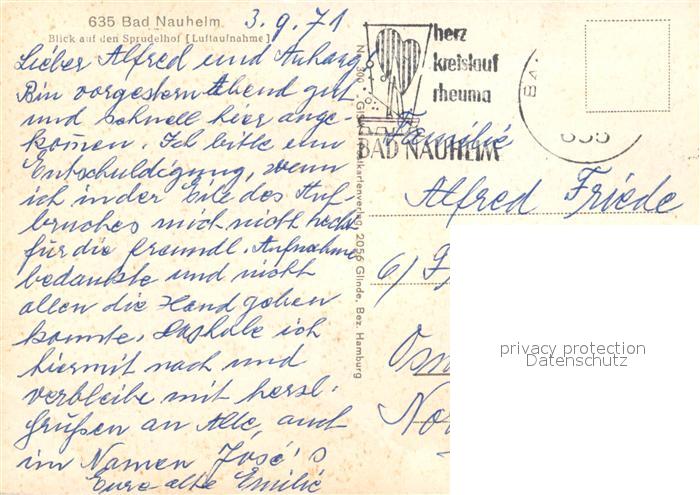 635 Bad Nauheim
Blick auf den Sprudelhof [Luftaufnahme]
3.9.71
Lieber Alfred und Anhang,
Bin vorgestern Abend gut
und schnell hier ange-
kommen. Ich bitte um
Entschuldigung, wenn
ich in der Eile des Auf-
bruches mich nicht recht
für die freundl. Aufnahme
bedankte und nicht
allen die Hand geben
konnte. Das hole ich
hiermit nach und
verbleibe mit herzl.
Grüßen an Alle, auch
im Namen José's
Eure alte Emilie
herz
kreislauf
rheuma
BAD NAUHEIM
BA
635
Familie
Alfred Friede
6) F
Osn
No
Bez. Hamburg
2056 Glinde,
privacy protection
Datenschutz